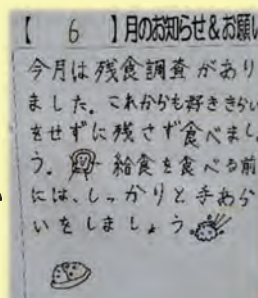 【 6 】月のお知らせ&お願い
今月は残食調査があり
ました。これからも好ききらい
をせずに残さず食べましょ
う。給食を食べる前
には、しっかりと手あら
いをしましょう